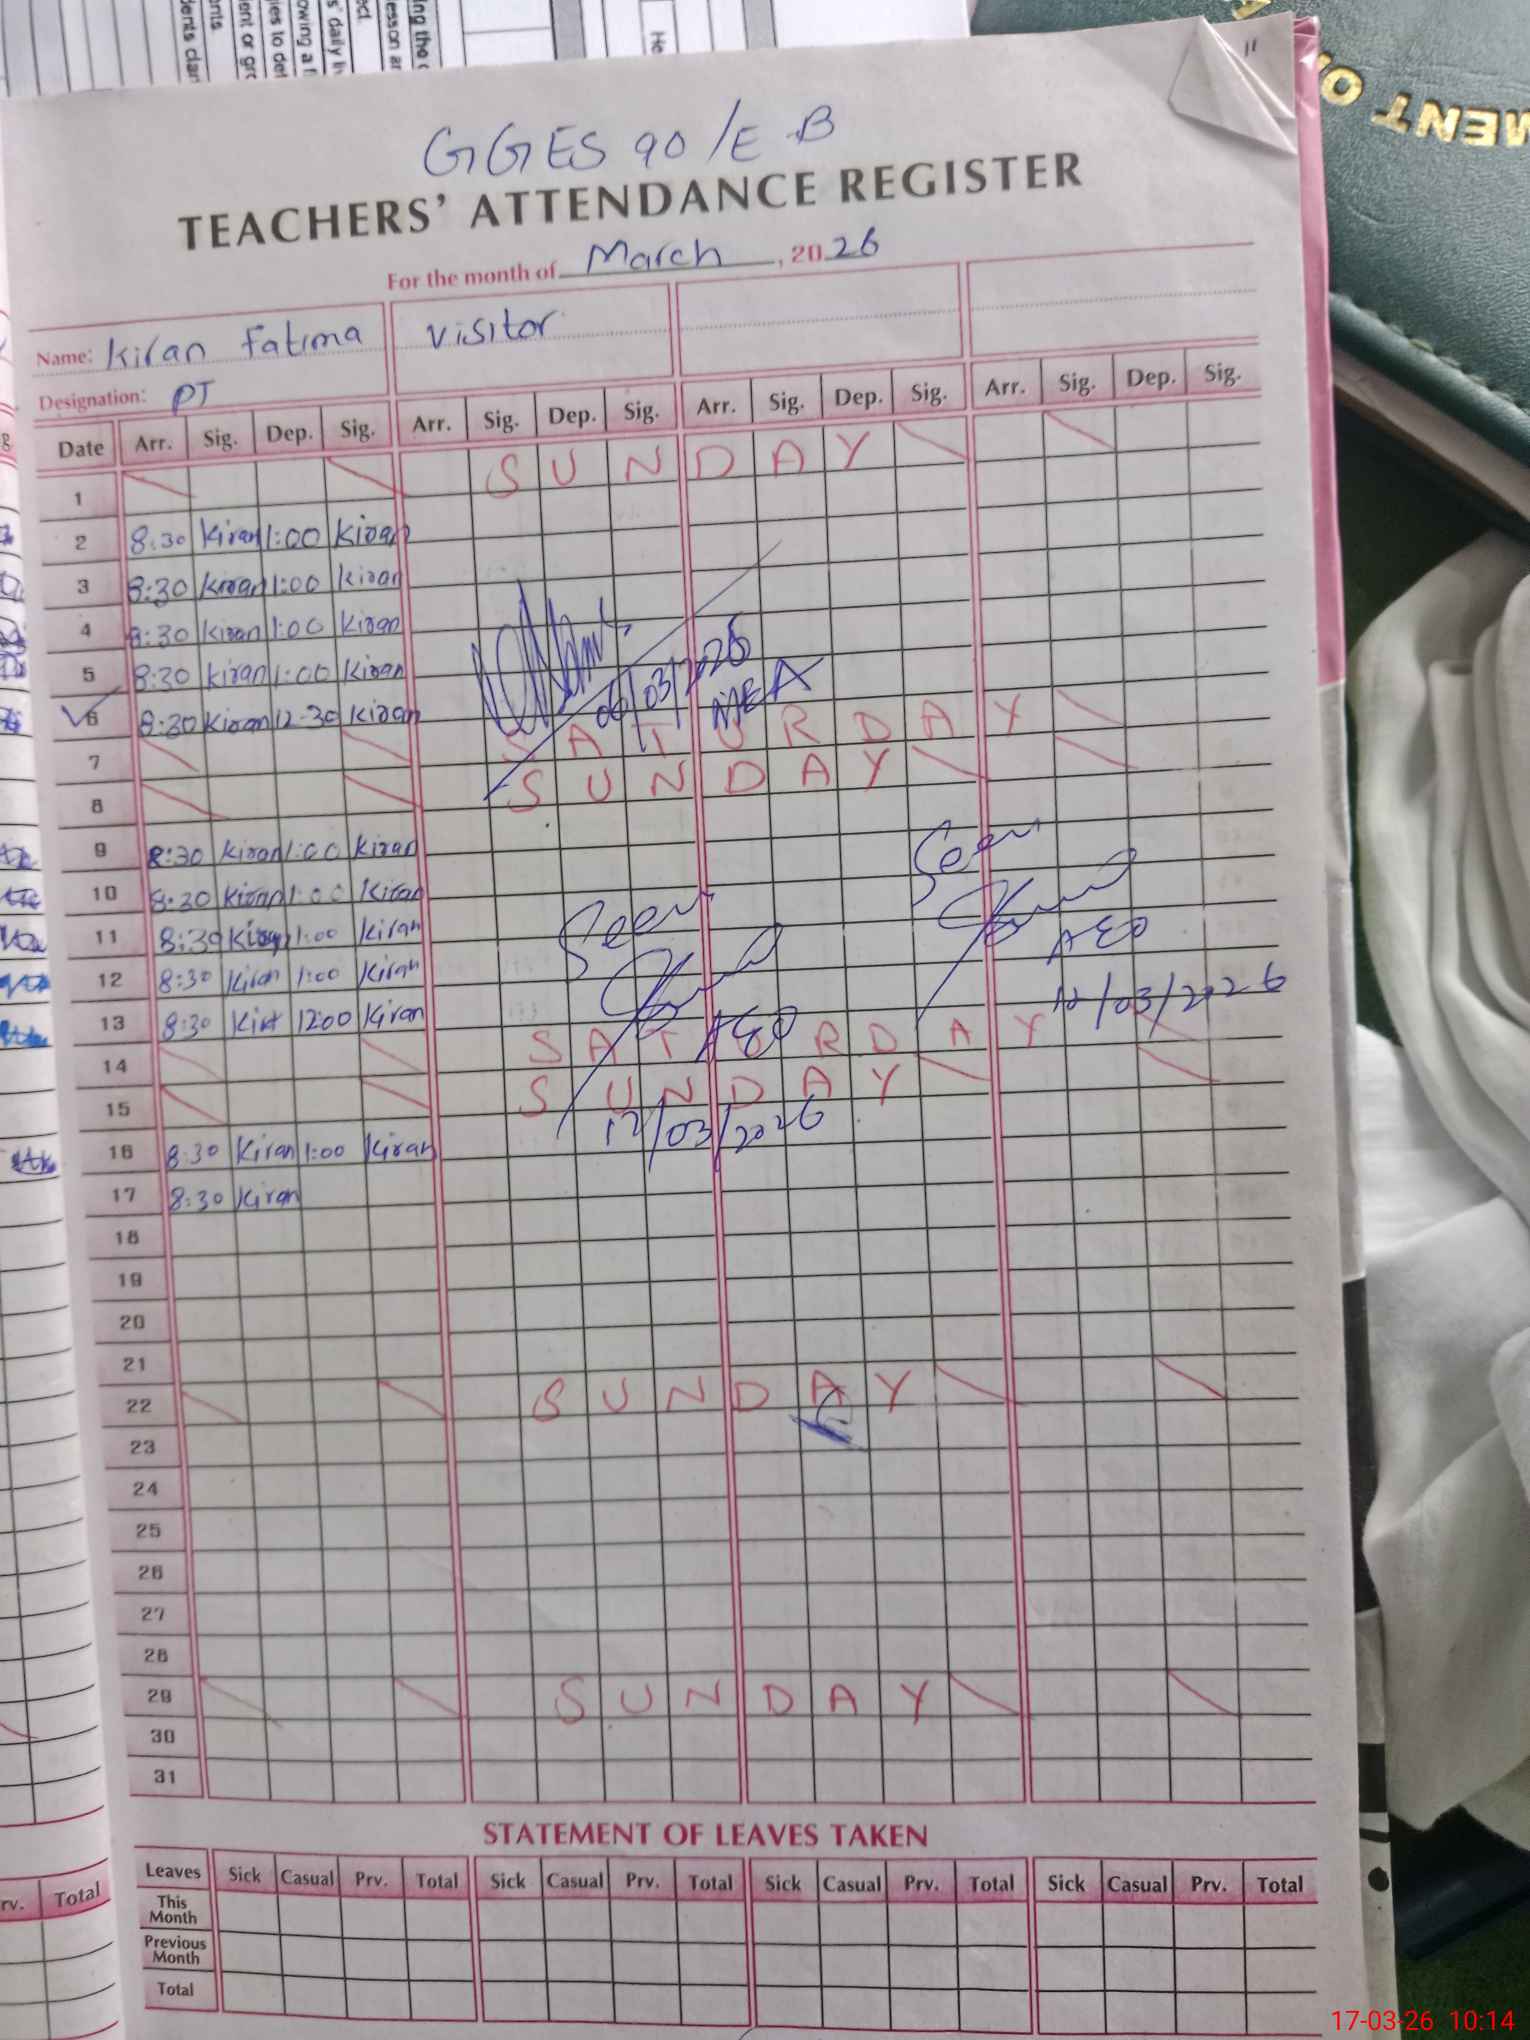 GGES 90/E B
TEACHERS' ATTENDANCE REGISTER
For the month of March, 2026
Name: Kiran Fatima Visitor
Designation: PT
Date Arr. Sig. Dep. Sig. Arr. Sig. Dep. Sig. Arr. Sig. Dep. Sig. Arr. Sig. Dep. Sig.
1 SUNDAY
2 8:30 Kiran 1:00 Kiran
3 8:30 Kiran 1:00 Kiran
4 8:30 Kiran 1:00 Kiran
5 8:30 Kiran 1:00 Kiran
06/03/2026
MEA
6 8:30 Kiran 12-30 Kiran
7 SATURDAY
8 SUNDAY
9 8:30 Kiran 1:00 Kiran
Seen
10 8:30 Kiran 1:00 Kiran
Seen
11 8:30 Kiran 1:00 Kiran
AEO
12 8:30 Kiran 1:00 Kiran
12/03/2026
13 8:30 Kiran 12:00 Kiran
AEO
14 SATURDAY
15 SUNDAY
12/03/2026
16 8:30 Kiran 1:00 Kiran
17 8:30 Kiran
18
19
20
21
22 SUNDAY
23
24
25
26
27
28
29 SUNDAY
30
31
STATEMENT OF LEAVES TAKEN
Leaves Sick Casual Prv. Total Sick Casual Prv. Total Sick Casual Prv. Total Sick Casual Prv. Total
This Month
Previous Month
Total
rv. Total
17-03-26 10:14